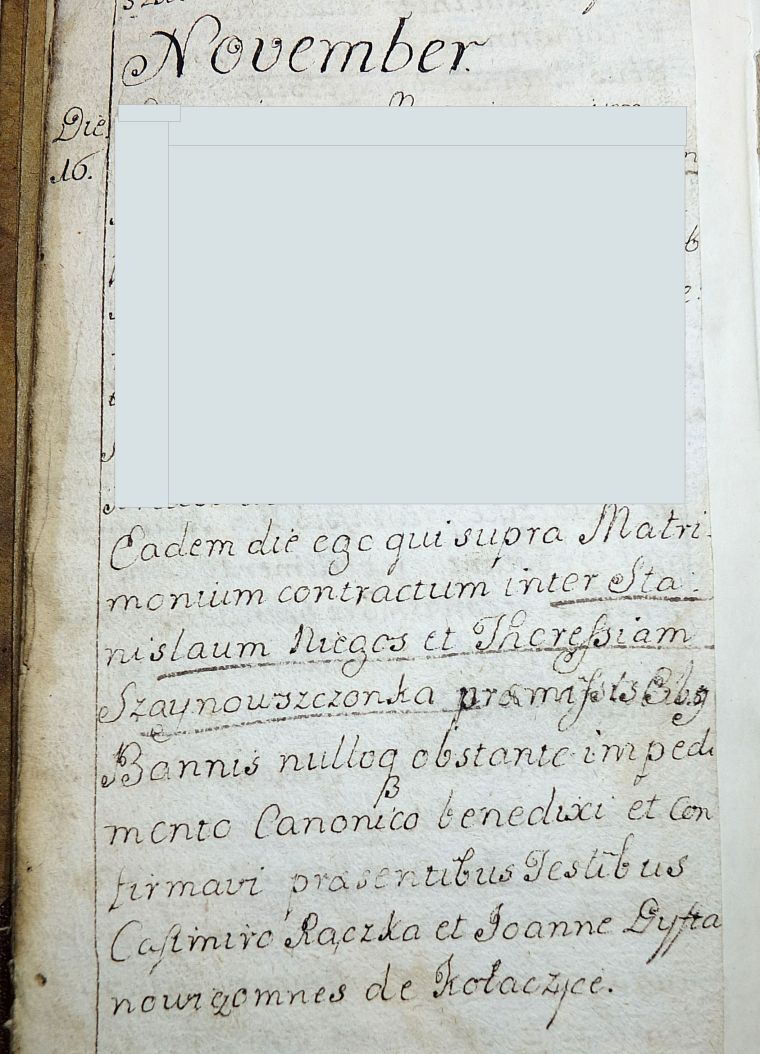 November.
Die
16.
Eadem die ego qui supra Matri.
monium contractum inter Sta:
nislaum Niegos et Theressiam
Szaynowszczonka præmissis
Bannis nulloq obstante impedi
mento Canonico benedixi et Con
firmavi præsentibus Testibus
Casimiro Rączka et Joanne Dysta
nowiq omnes de Kołaczyce.